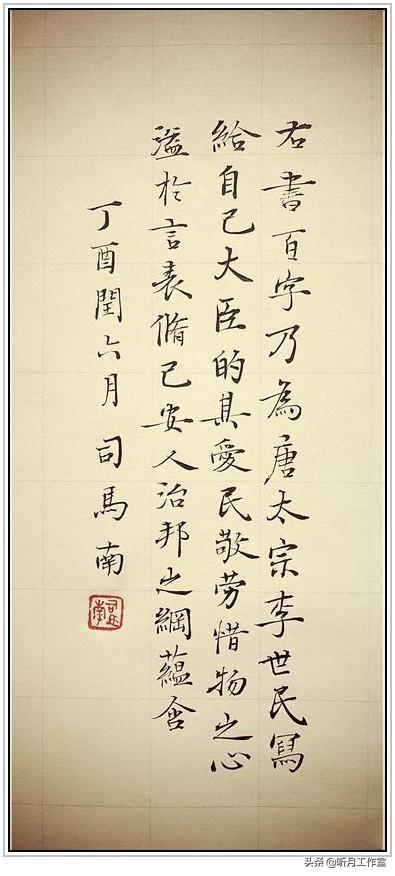 右書百字乃為唐太宗李世民寫
給自己大臣的其愛民敬劳惜物之心
溢於言表脩己安人治邦之綱蘊含
丁酉閏六月司馬南
头条 @听月工作室